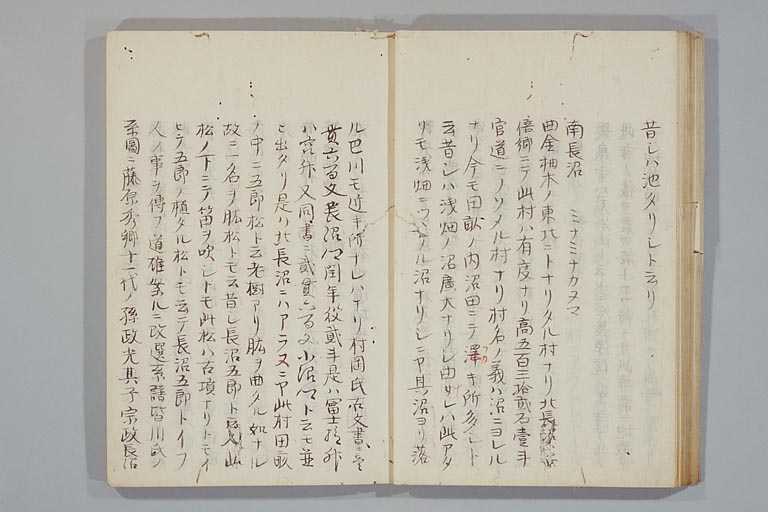 昔シハ池タリシト云リ
南長沼 ミナミナカヌマ
曲金柚木ノ東北ニトナリタル村ナリ北長沼
倍郷ニテ此村ハ有度ナリ高五百三拾貳石壹斗
官道ニノソメル村ナリ村名ノ義ハ沼ニヨレル
ナリ今モ田畝ノ内沼田ニテ澤キ所多シト
フカ
云昔シハ浅畑ノ沼廣大ナリシ由サレハ此アタ
リモ浅畑ニツヽケル沼ナリシニヤ其沼ヨリ落
ル巴川モ近キ所ナレハナリ村岡氏古文書ニ壹
貫六百文長沼閏年役貳斗是ハ冨士
ハ又同書ニ貳貫六百文小沼ト云モ並
ヒ出タリ是ハ北長沼ニハアラヌニヤ此村田畝
ノ中ニ五郎松ト云老樹アリ肱ヲ曲タル如ナル
故ニ一名ヲ肱松トモ云昔シ長沼五郎ト云人此
松ノ下ニテ笛ヲ吹シトモ此松ハ古墳ナリトモイ
ヒテ五郎ノ植タル松トモ云テ長沼五郎トイフ
人ノ事ヲ傳フ道雄案ルニ改選系譜皆川氏ノ
系圖ニ藤原秀郷十一代ノ孫政光其子宗政長沼